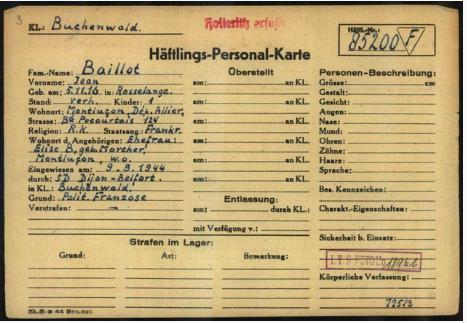 3
KL.: Buchenwald.
Hollerith erfaßt
Häftl.-Nr.:
85200 F
Häftlings-Personal-Karte
Fam.-Name: Baillot
Vorname: Jean
Geb. am: 5.11.16 in Rosselange.
Stand: verh. Kinder: 1
Wohnort: Montluçon, Dép. Allier,
Strasse: Bd Pocourtais 124
Religion: R.K. Staatsang. Frankr.
Wohnort d. Angehörigen: Ehefrau:
Elise B. geb. Morcher,
Montluçon, w.o.
Eingewiesen am: 9.9.1944
durch: SD Dijon-Belfort.
in KL.: Buchenwald.
Grund: Polit. Franzose
Vorstrafen: —
Überstellt
am: an KL.
am: an KL.
am: an KL.
am: an KL.
am: an KL.
am: an KL.
Entlassung:
am: durch KL.:
mit Verfügung v.:
Personen-Beschreibung:
Grösse: cm
Gestalt:
Gesicht:
Augen:
Nase:
Mund:
Ohren:
Zähne:
Haare:
Sprache:
Bes. Kennzeichen:
Charakt.-Eigenschaften:
Sicherheit b. Einsatz:
Körperliche Verfassung:
Strafen im Lager:
Grund: Art: Bemerkung: